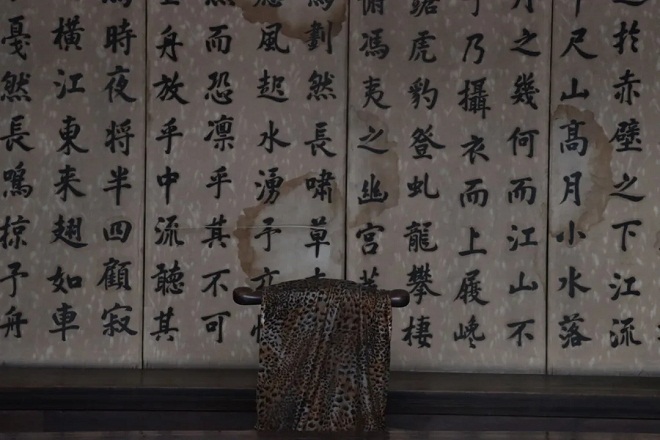 於赤壁之下江流
尺山髙月小水落
月之幾何而江山不
乃攝衣而上履巉
踞虎豹登虬龍攀棲
俯馮夷之幽宮
劃然長嘯草
應風起水湧予亦
然而恐凛乎其不可
舟放乎中流聽其
時夜将半四顧寂
橫江東来翅如車
戛然長鳴掠予舟